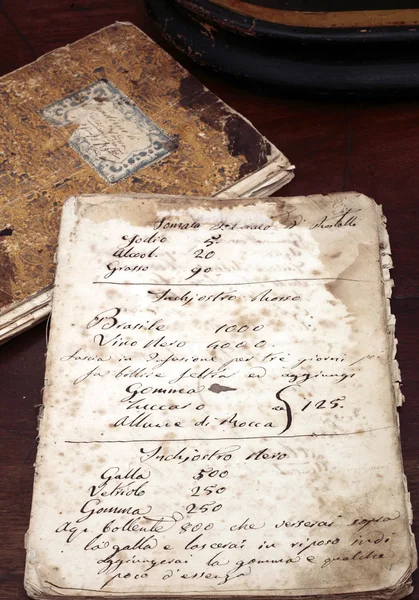 Pomata
Jodio 5.
Alcool. 20
Grasso 90
Inchiostro Rosso
Brasile 1000
Vino Nero 4000.
Lascia in infusione per tre giorni
fa bollire feltra ed aggiungi
Gomma
Zuccaro
Allume di Rocca
aa } 125.
Inchiostro Nero
Galla 500
Vetriolo 250
Gomma 250
Aqu bollente 800 che verserai sopra
la galla e lascerai in riposo indi
aggiungerai la gomma e qualche
poco d'essenza